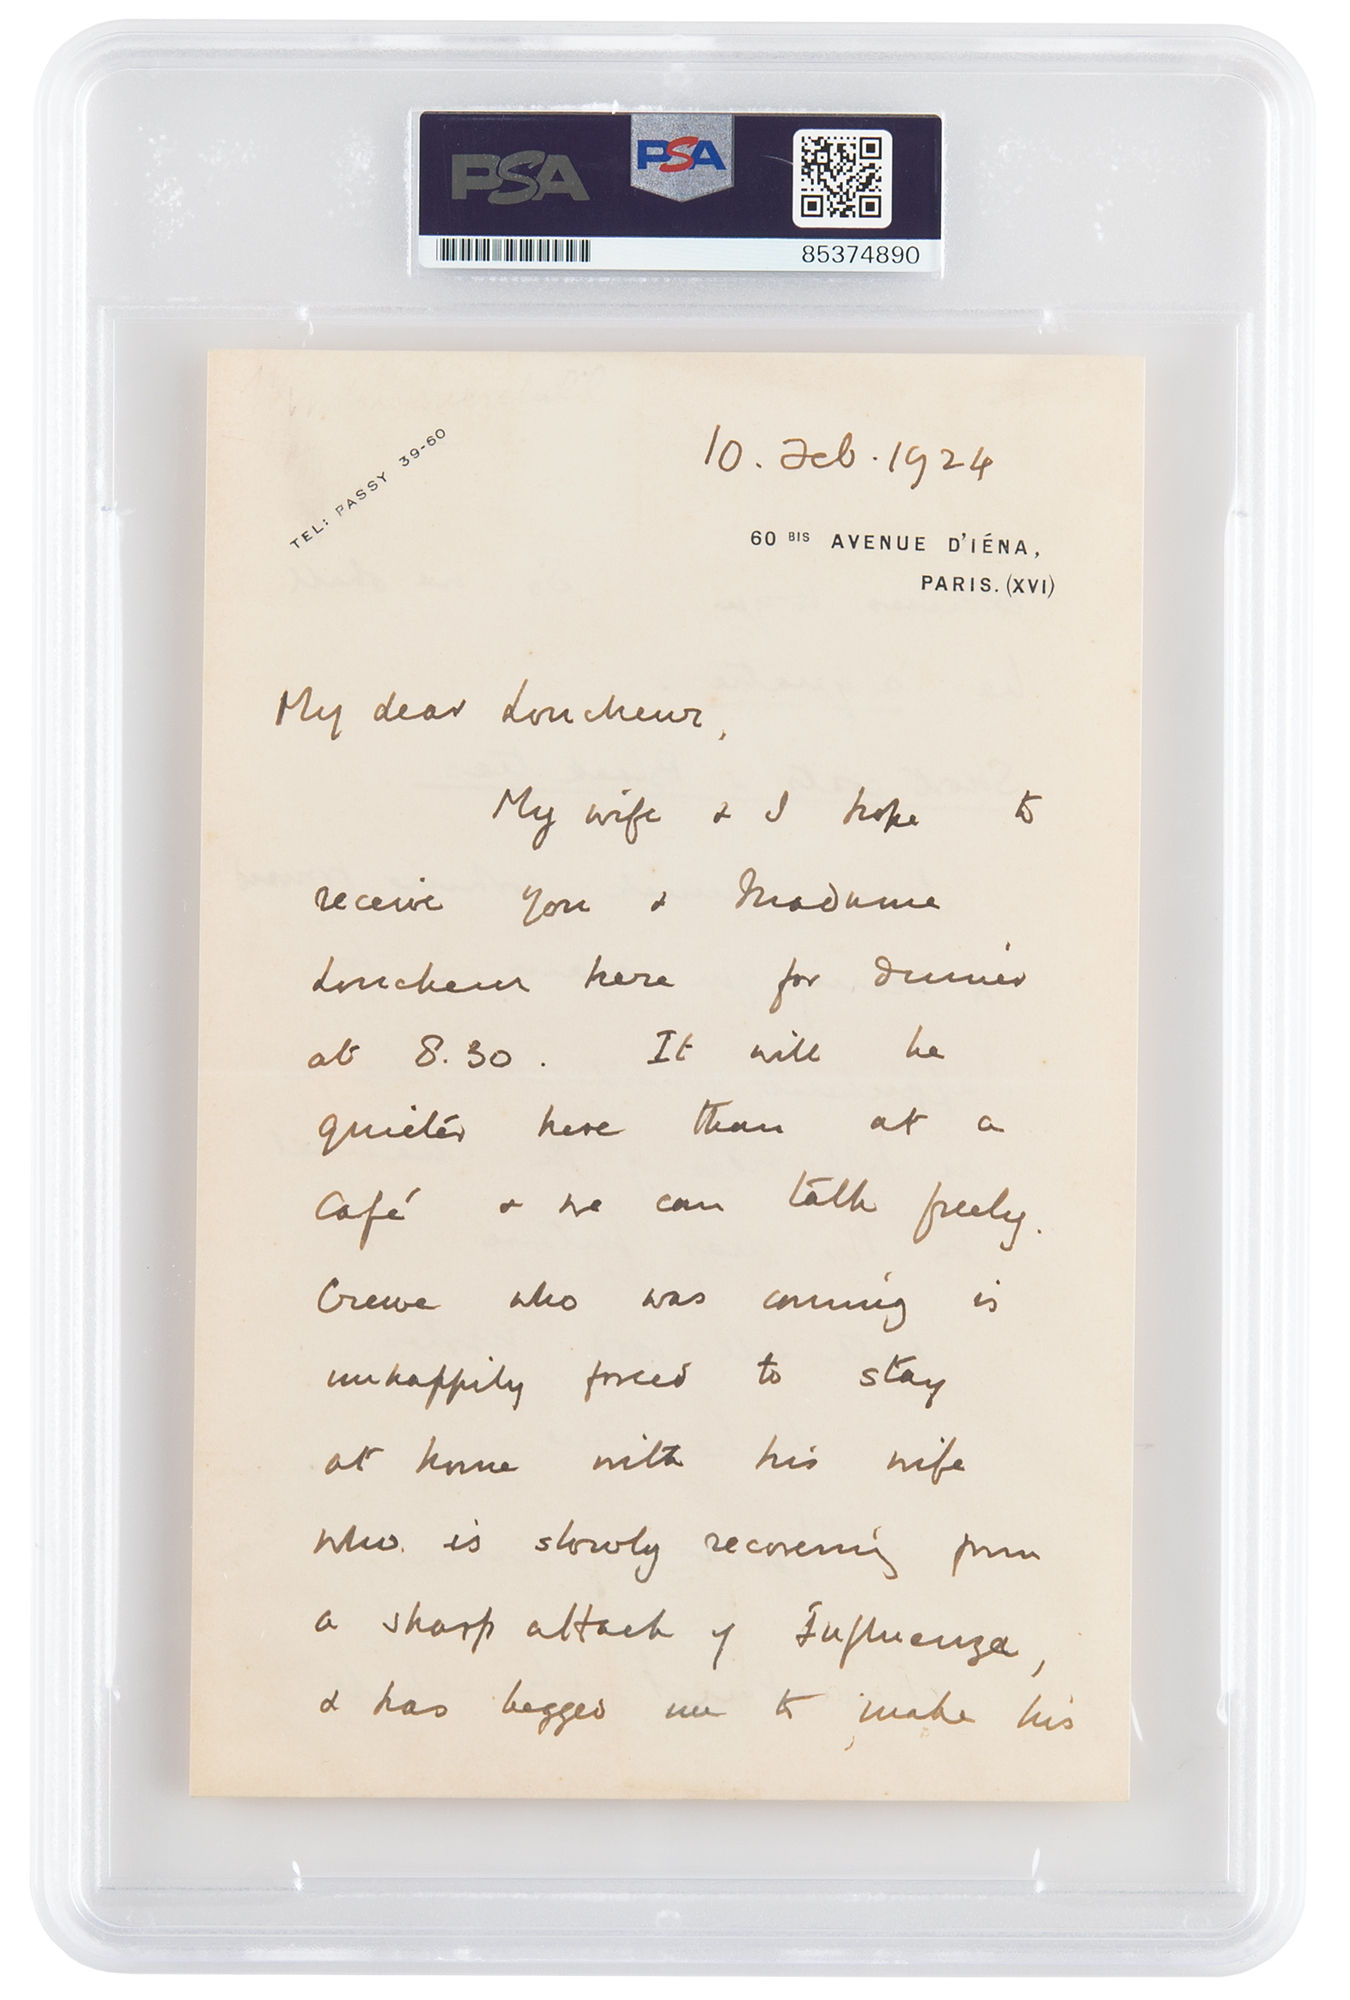 PSA
PSA
85374890
TEL: PASSY 39-60
10. Feb. 1924
60 BIS AVENUE D'IÉNA,
PARIS. (XVI)
My dear Loucheur,
My wife & I hope to
receive you & Madame
Loucheur here for dinner
at 8.30. It will be
quieter here than at a
Café & we can talk freely.
Crewe who was coming is
unhappily forced to stay
at home with his wife
who is slowly recovering from
a sharp attack of Influenza,
& has begged me to make his